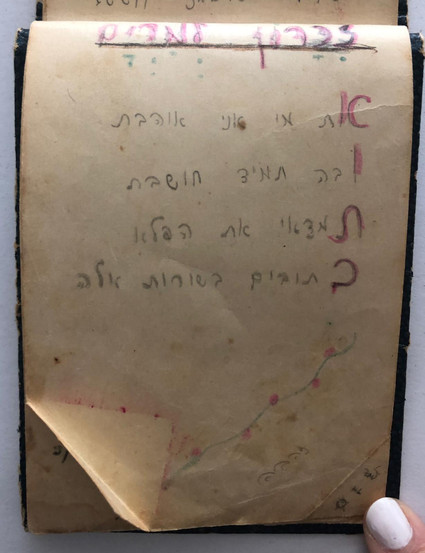 זכרון למרים
את מי אני אוהבת
ובה תמיד חושבת
תמצאי את הפלא
כתובים בשורות אלה